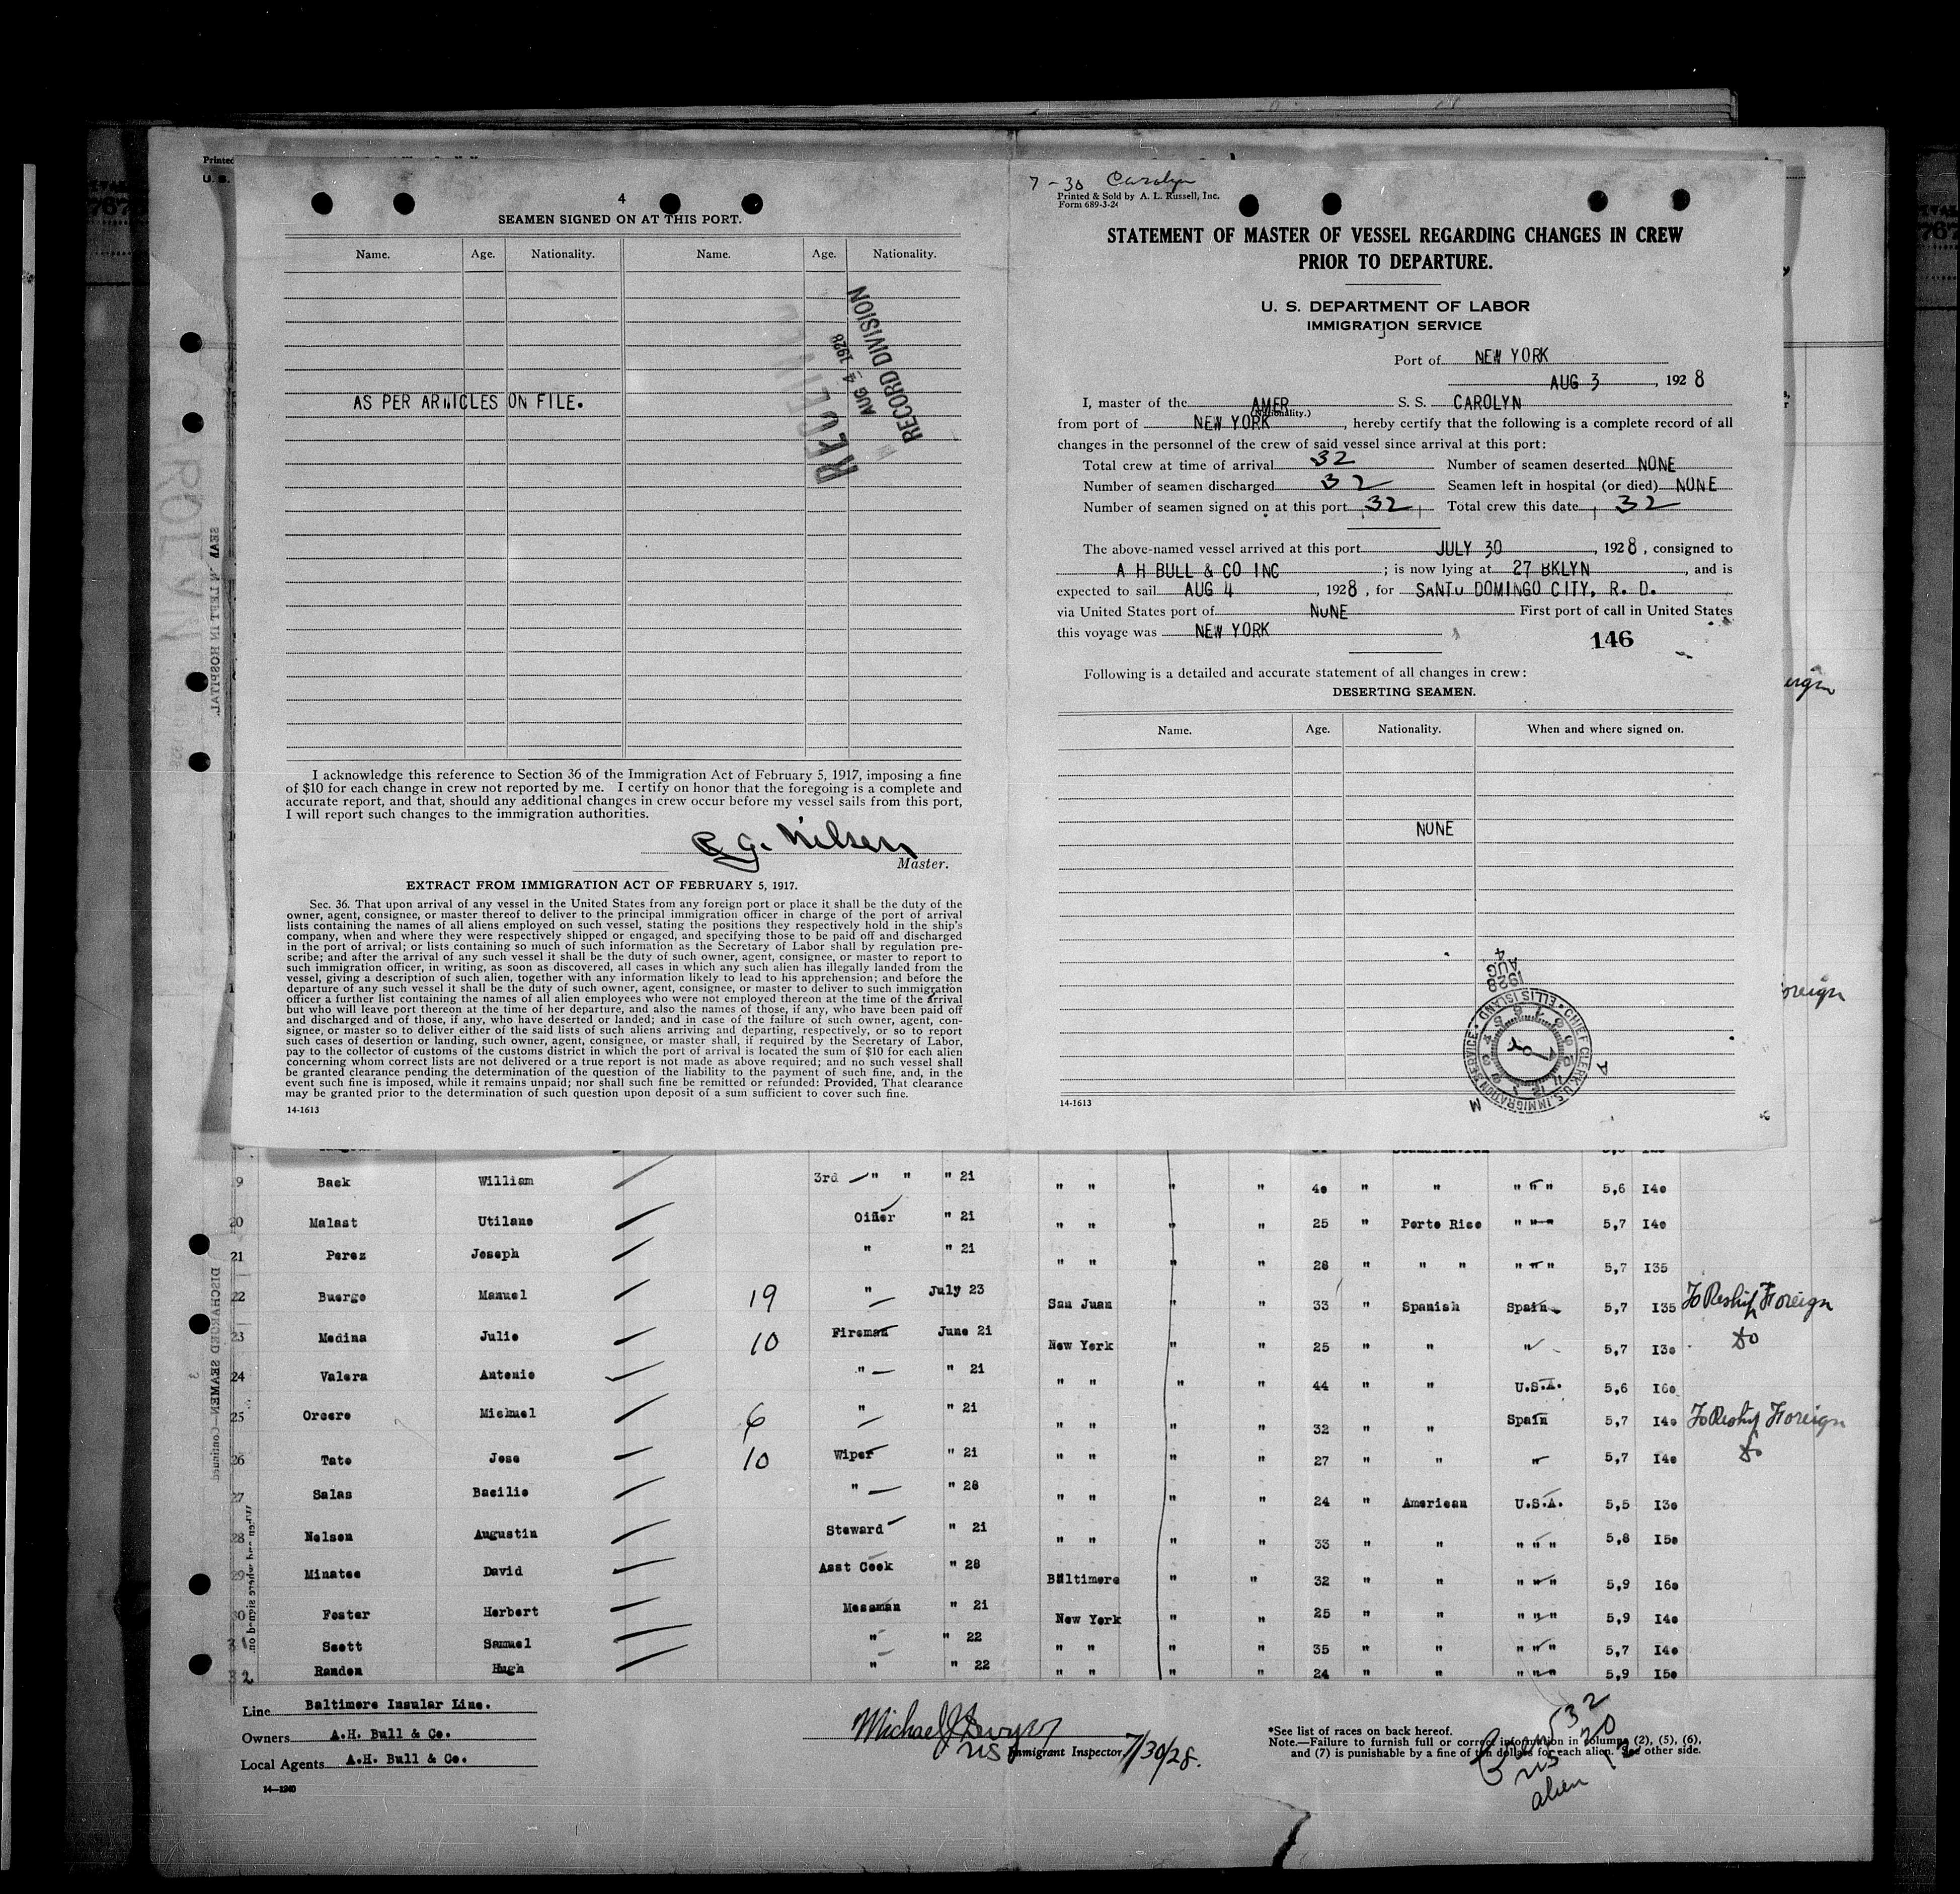 4
SEAMEN SIGNED ON AT THIS PORT.
Name. Age. Nationality. Name. Age. Nationality.
AS PER ARTICLES ON FILE.
RECEIVED
AUG 4 1928
RECORD DIVISION
I acknowledge this reference to Section 36 of the Immigration Act of February 5, 1917, imposing a fine
of $10 for each change in crew not reported by me. I certify on honor that the foregoing is a complete and
accurate report, and that, should any additional changes in crew occur before my vessel sails from this port,
I will report such changes to the immigration authorities.
Nilsen
Master.
EXTRACT FROM IMMIGRATION ACT OF FEBRUARY 5, 1917.
Sec. 36. That upon arrival of any vessel in the United States from any foreign port or place it shall be the duty of the
owner, agent, consignee, or master thereof to deliver to the principal immigration officer in charge of the port of arrival
lists containing the names of all aliens employed on such vessel, stating the positions they respectively hold in the ship's
company, when and where they were respectively shipped or engaged, and specifying those to be paid off and discharged
in the port of arrival; or lists containing so much of such information as the Secretary of Labor shall by regulation pre-
scribe; and after the arrival of any such vessel it shall be the duty of such owner, agent, consignee, or master to report to
such immigration officer, in writing, as soon as discovered, all cases in which any such alien has illegally landed from the
vessel, giving a description of such alien, together with any information likely to lead to his apprehension; and before the
departure of any such vessel it shall be the duty of such owner, agent, consignee, or master to deliver to such immigration
officer a further list containing the names of all alien employees who were not employed thereon at the time of the arrival
but who will leave port thereon at the time of her departure, and also the names of those, if any, who have been paid off
and discharged and of those, if any, who have deserted or landed; and in case of the failure of such owner, agent, con-
signee, or master so to deliver either of the said lists of such aliens arriving and departing, respectively, or so to report
such cases of desertion or landing, such owner, agent, consignee, or master shall, if required by the Secretary of Labor,
pay to the collector of customs of the customs district in which the port of arrival is located the sum of $10 for each alien
concerning whom correct lists are not delivered or a true report is not made as above required; and no such vessel shall
be granted clearance pending the determination of the question of the liability to the payment of such fine, and, in the
event such fine is imposed, while it remains unpaid; nor shall such fine be remitted or refunded: Provided, That clearance
may be granted prior to the determination of such question upon deposit of a sum sufficient to cover such fine.
14-1613
7-30 Carolyn
Printed & Sold by A. L. Russell, Inc.
Form 689-3-24
STATEMENT OF MASTER OF VESSEL REGARDING CHANGES IN CREW
PRIOR TO DEPARTURE.
U. S. DEPARTMENT OF LABOR
IMMIGRATION SERVICE
Port of NEW YORK
AUG 3, 1928
I, master of the AMER S. S. CAROLYN
(Nationality.)
from port of NEW YORK, hereby certify that the following is a complete record of all
changes in the personnel of the crew of said vessel since arrival at this port:
Total crew at time of arrival 32 Number of seamen deserted NONE
Number of seamen discharged 32 Seamen left in hospital (or died) NONE
Number of seamen signed on at this port 32 Total crew this date 32
The above-named vessel arrived at this port JULY 30, 1928, consigned to
A H BULL & CO INC; is now lying at 27 BKLYN, and is
expected to sail AUG 4, 1928, for SANTO DOMINGO CITY, R. D.
via United States port of NONE First port of call in United States
this voyage was NEW YORK
146
Following is a detailed and accurate statement of all changes in crew:
DESERTING SEAMEN.
Name. Age. Nationality. When and where signed on.
NONE
1928 AUG 4
CHIEF CLERK U.S. IMMIGRATION SERVICE ELLIS ISLAND
14-1613
19 Back William 3rd " " " 21 " " " " 40 " " " " " 5,6 140
20 Malast Utilano Oiler " 21 " " " " 25 " Porto Rico " " " 5,7 140
21 Perez Joseph " " 21 " " " " 28 " " " " " " 5,7 135
22 Buergo Manuel 19 " July 23 San Juan " " 33 " Spanish Spain 5,7 135 To Reship Foreign
23 Medina Julio 10 Fireman June 21 New York " " 25 " " " 5,7 130 Do
24 Valera Antonio " " 21 " " " " 44 " " U.S.A. 5,6 160
25 Orcero Michuel 6 " " 21 " " " " 32 " " Spain 5,7 140 To Reship Foreign
26 Tato Jose 10 Wiper " 21 " " " " 27 " " " 5,7 140 Do
27 Salas Basilio " " 28 " " " " 24 " American U.S.A. 5,5 130
28 Nelson Augustin Steward " 21 " " " " 33 " " " " " 5,8 150
29 Minatee David Asst Cook " 28 Baltimore " " 32 " " " " " 5,9 160
30 Foster Herbert Messman " 21 New York " " 25 " " " " " 5,9 140
31 Scott Samuel " " 22 " " " " 35 " " " " " 5,7 140
32 Randon Hugh " " 22 " " " " 24 " " " " " 5,9 150
Line Baltimore Insular Line.
Owners A.H. Bull & Co.
Local Agents A.H. Bull & Co.
14-1240
Michael J Dwyer
US Immigrant Inspector 7/30/28.
*See list of races on back hereof.
Note.—Failure to furnish full or correct information in columns (2), (5), (6),
and (7) is punishable by a fine of ten dollars for each alien. See other side.
Crew 32
US 20
alien 12